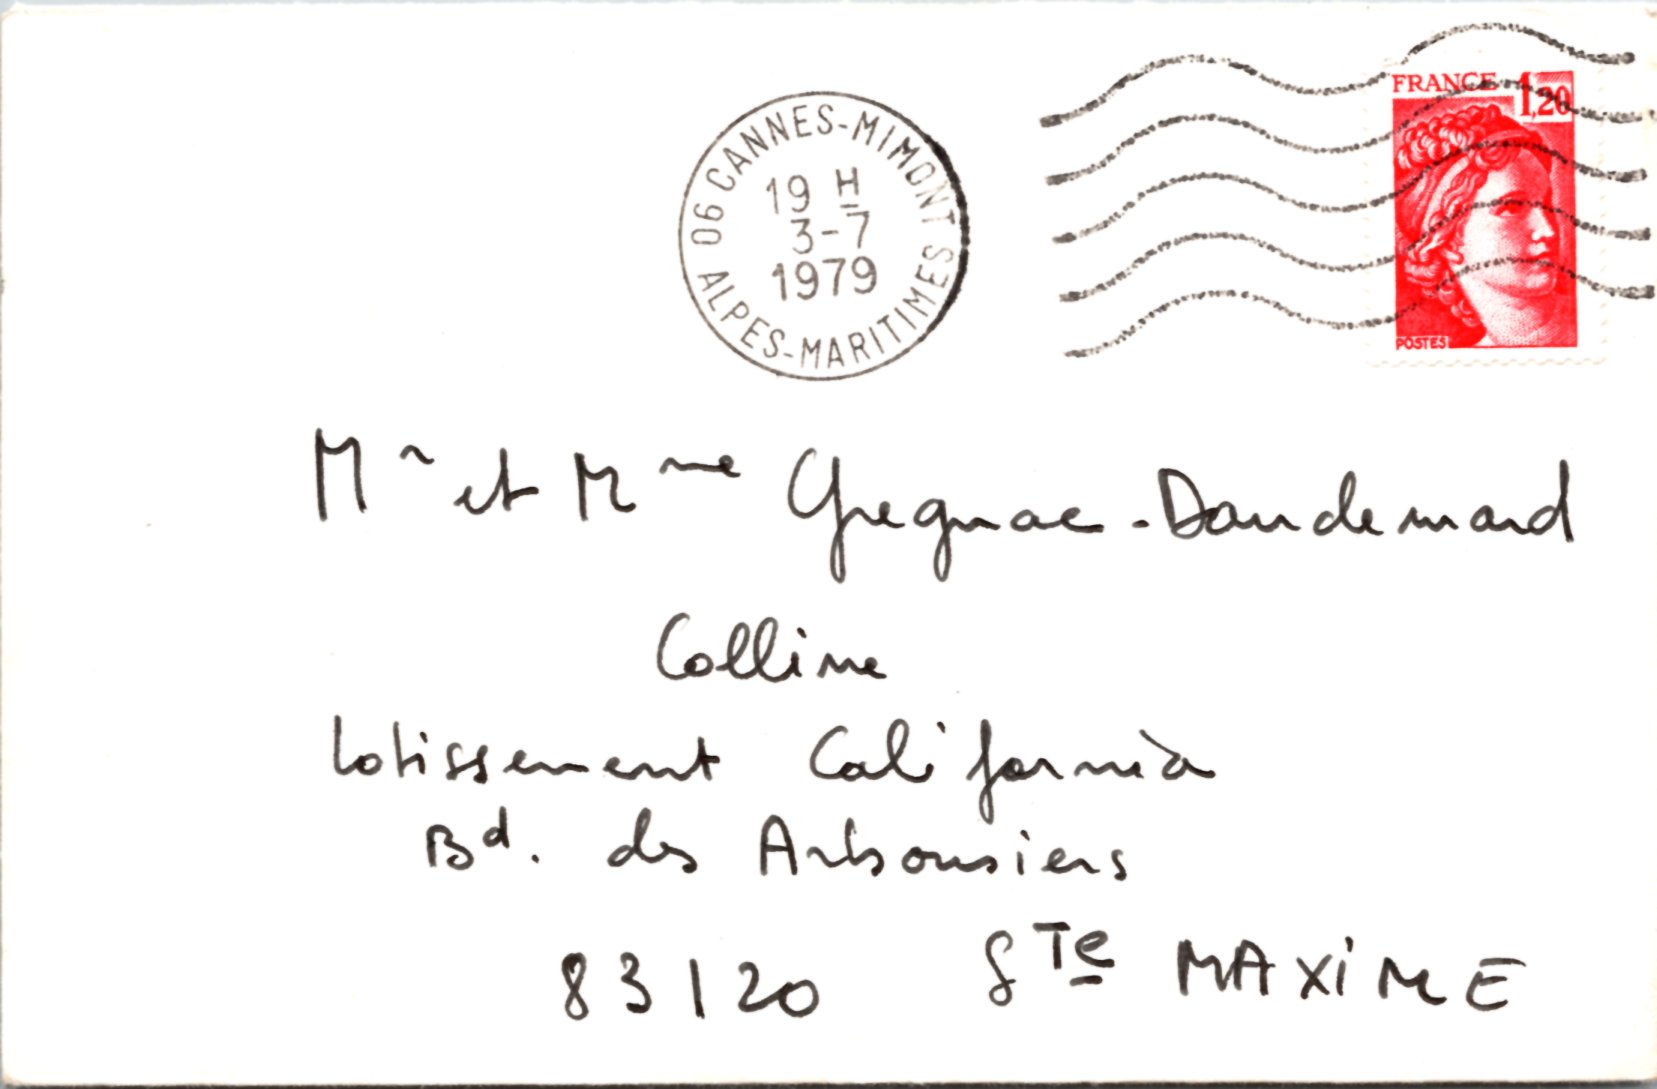 06 CANNES-MIMONT
19 H
3-7
1979
ALPES-MARITIMES
FRANCE 1,20
POSTES
Mr et Mme Gregnac-Daudemard
Colline
Lotissement California
Bd. des Arbousiers
83120 Ste MAXIME